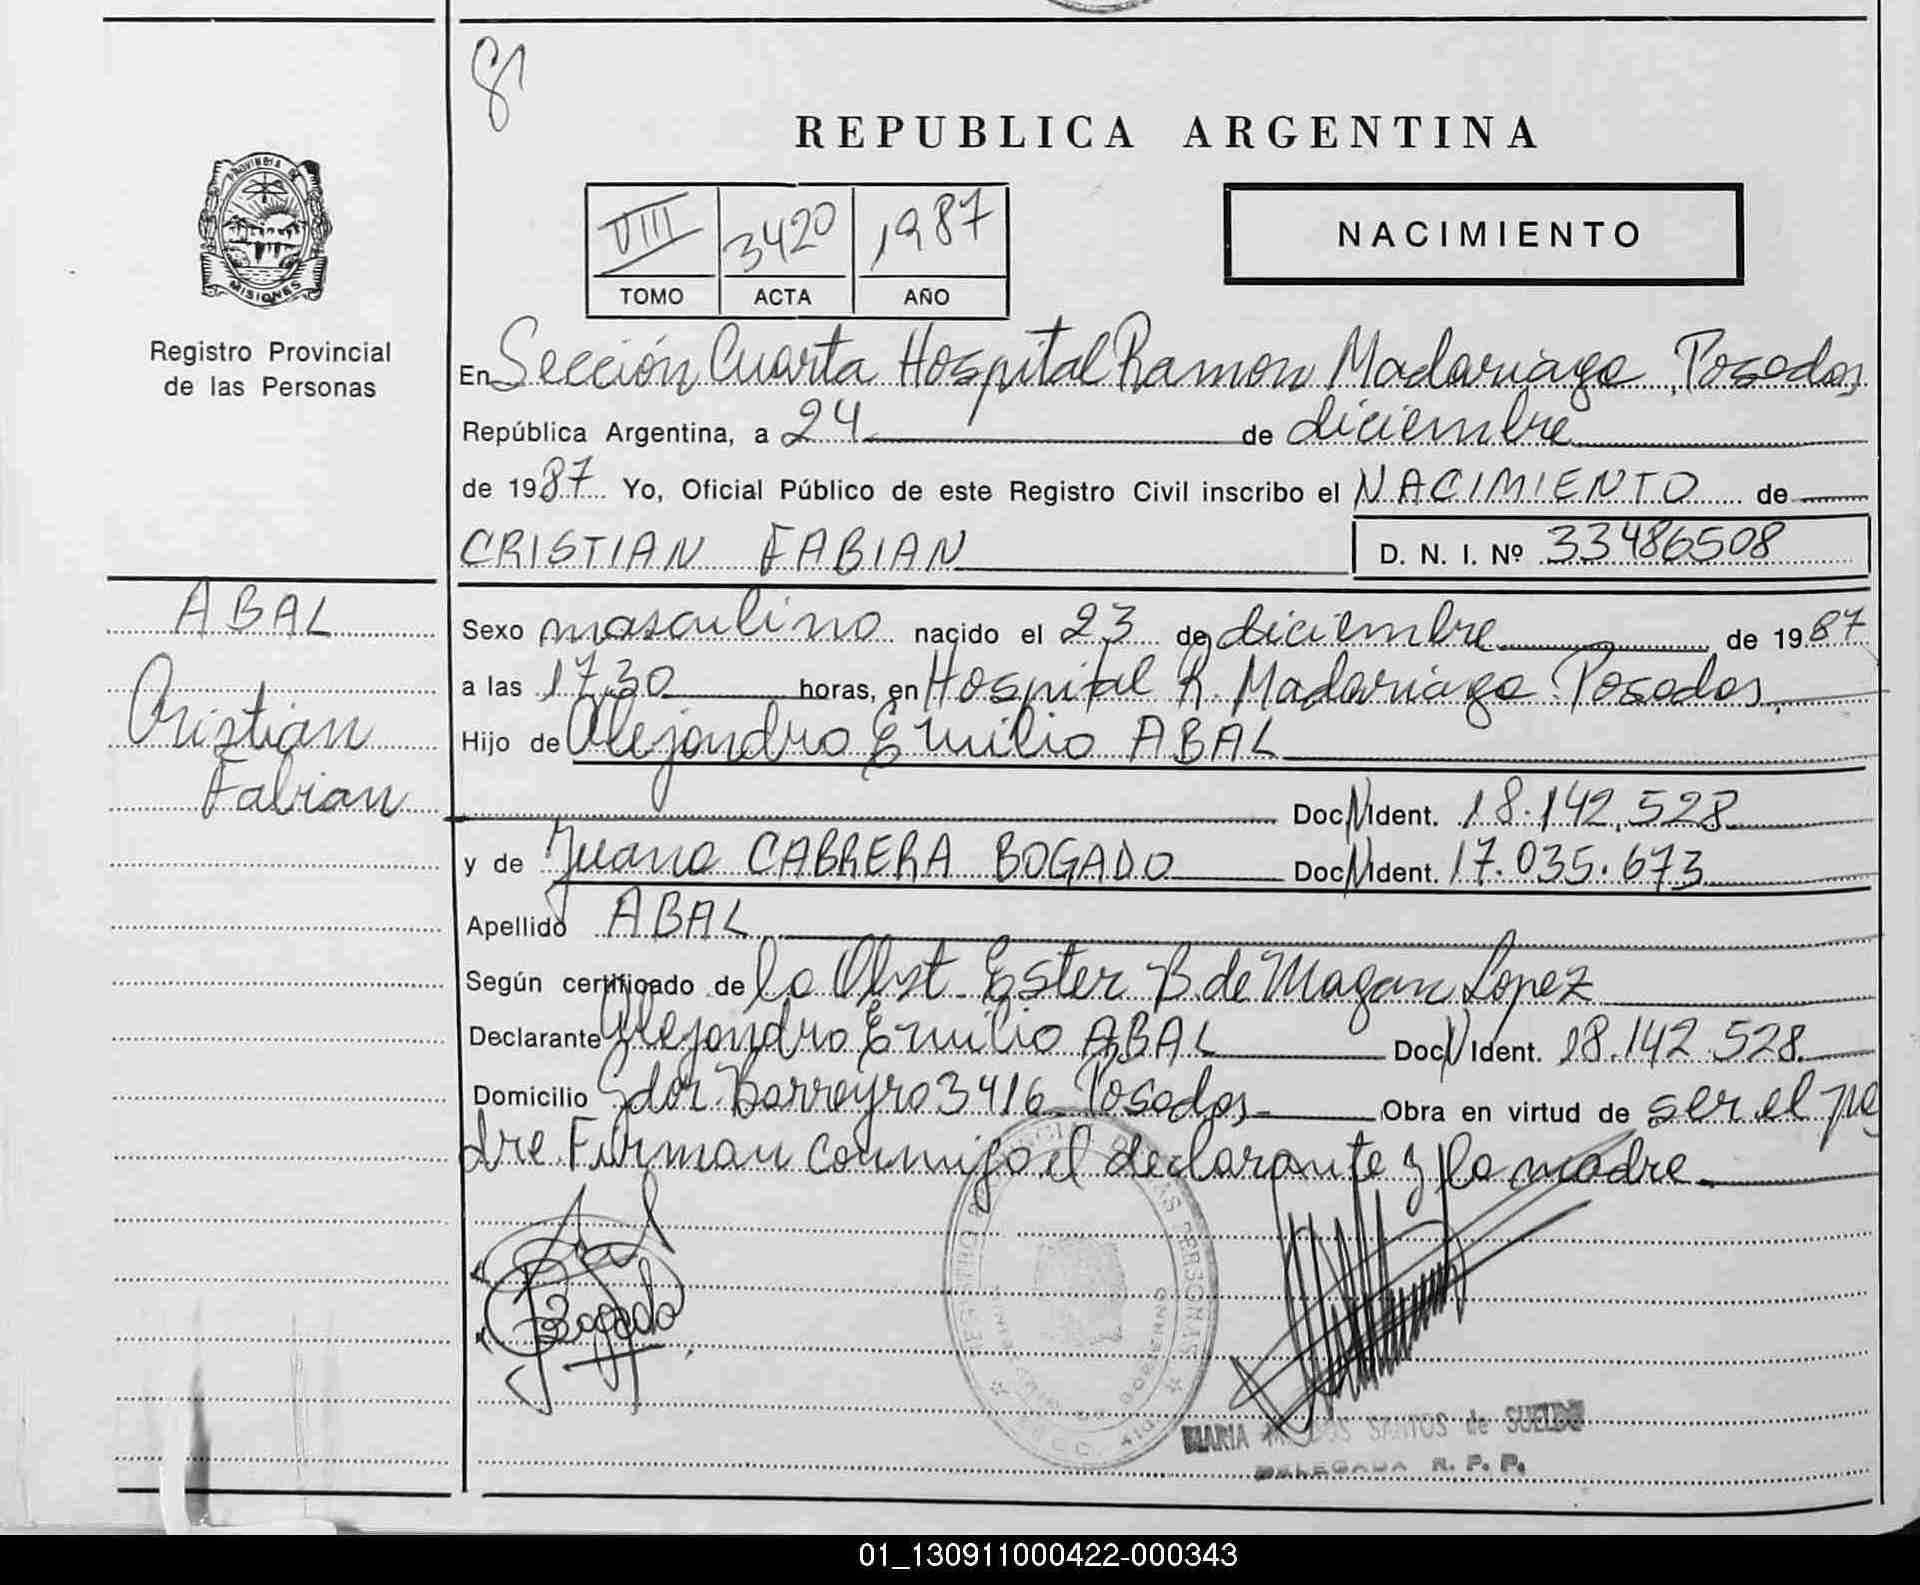 81
REPUBLICA ARGENTINA
PROVINCIA DE
MISIONES
Registro Provincial
de las Personas
VIII 3420 1987
TOMO ACTA AÑO
NACIMIENTO
En Sección Cuarta Hospital Ramon Madariaga, Posadas
República Argentina, a 24 de diciembre
de 1987 Yo, Oficial Público de este Registro Civil inscribo el NACIMIENTO de
CRISTIAN FABIAN D. N. I. Nº 33486508
ABAL
Cristian
Fabian
Sexo masculino nacido el 23 de diciembre de 1987
a las 17,30 horas, en Hospital R. Madariaga Posadas.
Hijo de Alejandro Emilio ABAL
Doc N Ident. 18.142.528
y de Juana CABRERA BOGADO Doc N Ident. 17.035.673
Apellido ABAL
Según certificado de la Obst. Ester B. de Magan Lopez
Declarante Alejandro Emilio ABAL Doc N Ident. 18.142.528.
Domicilio Gdor. Barreyro 3416 Posadas Obra en virtud de ser el pa
dre. Firman conmigo el declarante y la madre
Bogado
MARIA SANTOS de SUELDO
DELEGADA R. P. P.
01_130911000422-000343